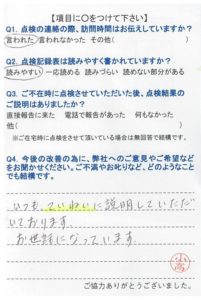 【項目に○をつけて下さい】
Q1. 点検の連絡の際、訪問時間はお伝えしていますか?
言われた 言われなかった その他(
Q2. 点検記録表は読みやすく書かれていますか?
読みやすい 一応読める 読みづらい 読めない部分がある
Q3. ご不在時に点検させていただいた後、点検結果の
ご説明はありましたか?
直接報告に来た 電話で報告があった 何もなかった
他(
※ご在宅時に点検をさせて頂いている場合は無回答で結構です。
Q4. 今後の改善の為に、弊社へのご意見やご希望など
をお聞かせください。ご不満やお叱りなど、どのようなこと
でも結構です。
いつも、ていねいに説明していただ
いております。
お世話になっています。
ご協力ありがとうございました。